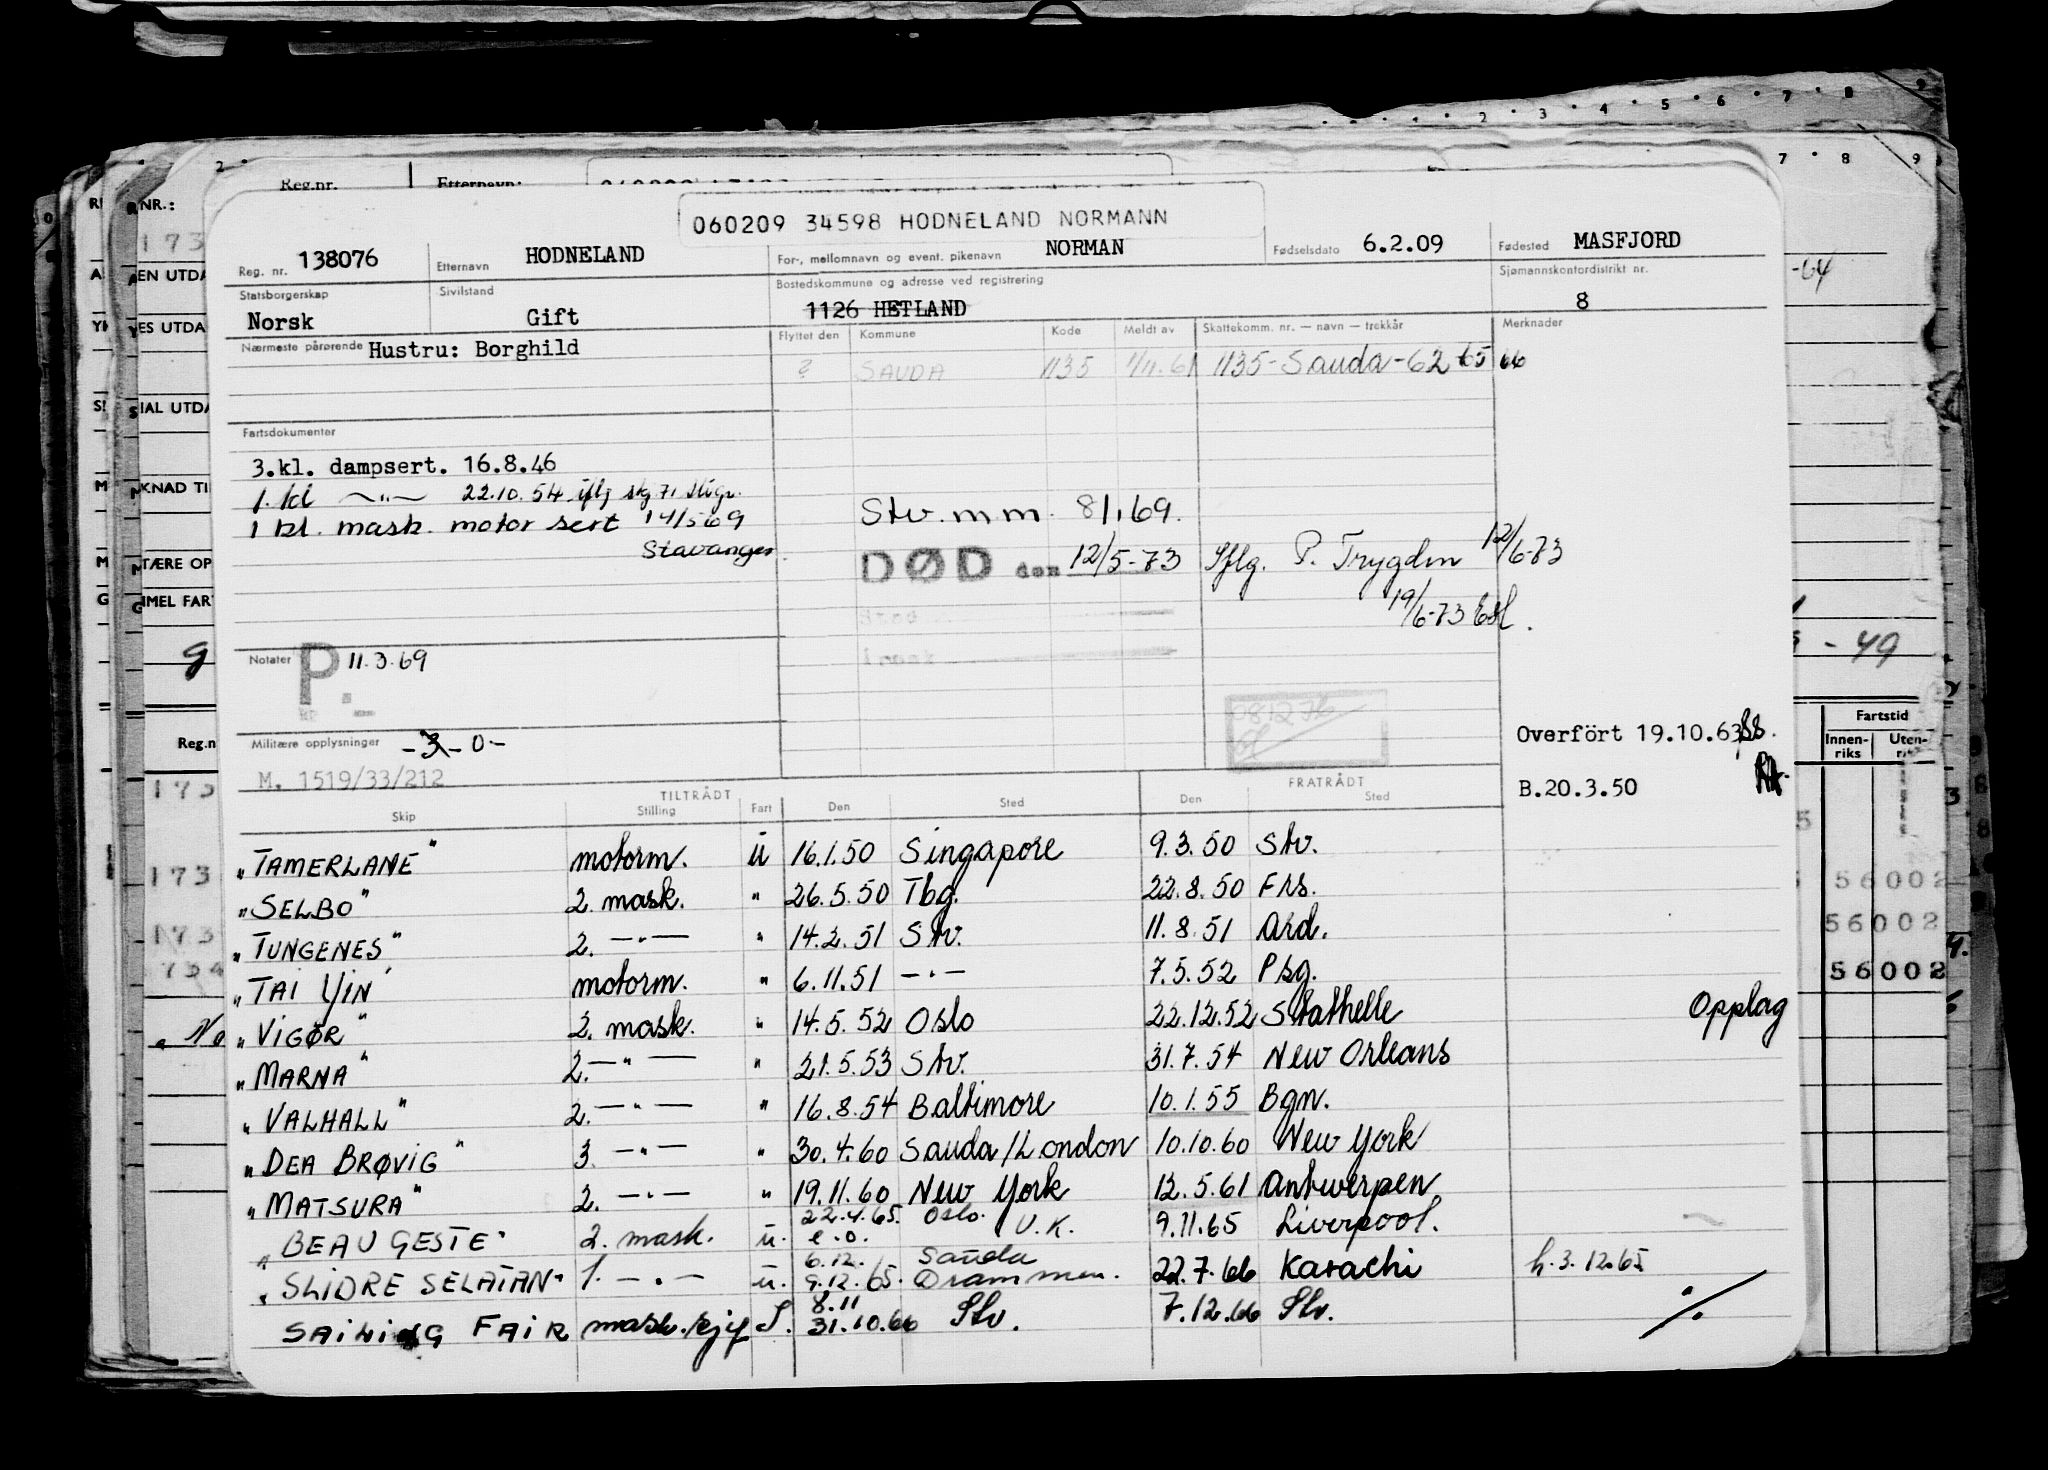 Reg.nr. Etternavn:
060209 34598 HODNELAND NORMANN
Reg. nr. 138076 Etternavn HODNELAND For-, mellomnavn og event. pikenavn NORMAN Fødselsdato 6.2.09 Fødested MASFJORD
Statsborgerskap Norsk Sivilstand Gift Bostedskommune og adresse ved registrering 1126 HETLAND Sjømannskontordistrikt nr. 8
Nærmeste pårørende Hustru: Borghild Flyttet den Kommune Kode Meldt av Skattekomm. nr. — navn — trekkår Merknader
? SAUDA 1135 1/11.61 1135-Sauda-62 65 66
Fartsdokumenter
3.kl. dampsert. 16.8.46
1. kl —"— 22.10.54
1 kl. mask. motor sert 14/5 69
Stavanger
Stv. m m. 8/1 69.
DØD den 12/5-73 Iflg. P. Trygden 12/6-73
19/6-73
Notater P. 11.3.69
Militære opplysninger -3-0-
M. 1519/33/212
Overført 19.10.63
B.20.3.50
TILTRÅDT FRATRÅDT
Skip Stilling Fart Den Sted Den Sted
"TAMERLANE" motorm. u 16.1.50 Singapore 9.3.50 Stv.
"SELBO" 2. mask. " 26.5.50 Tbg. 22.8.50 Frs.
"TUNGENES" 2. —"— " 14.2.51 Stv. 11.8.51 Ard.
"TAI YIN" motorm. " 6.11.51 —"— 7.5.52 Psg.
"VIGØR" 2. mask. " 14.5.52 Oslo 22.12.52 Stathelle Opplag
"MARNA" 2. —"— " 21.5.53 Stv. 31.7.54 New Orleans
"VALHALL" 2. —"— " 16.8.54 Baltimore 10.1.55 Bgn.
"DEA BRØVIG" 3. —"— " 30.4.60 Sauda/London 10.10.60 New York
"MATSURA" 2. —"— " 19.11.60 New York 12.5.61 Antwerpen
"BEAU GESTE" 2. mask. u. 22.4.65. e.o. Oslo. U.K. 9.11.65 Liverpool.
"SLIDRE SELATAN" 1. —"— u. 6.12. 9.12.65. Sauda Drammen. 22.7.66 Karachi h.3.12.65
SAILING FAIR mask. S. 8.11 31.10.66 Stv. 7.12.66 Stv. ./.